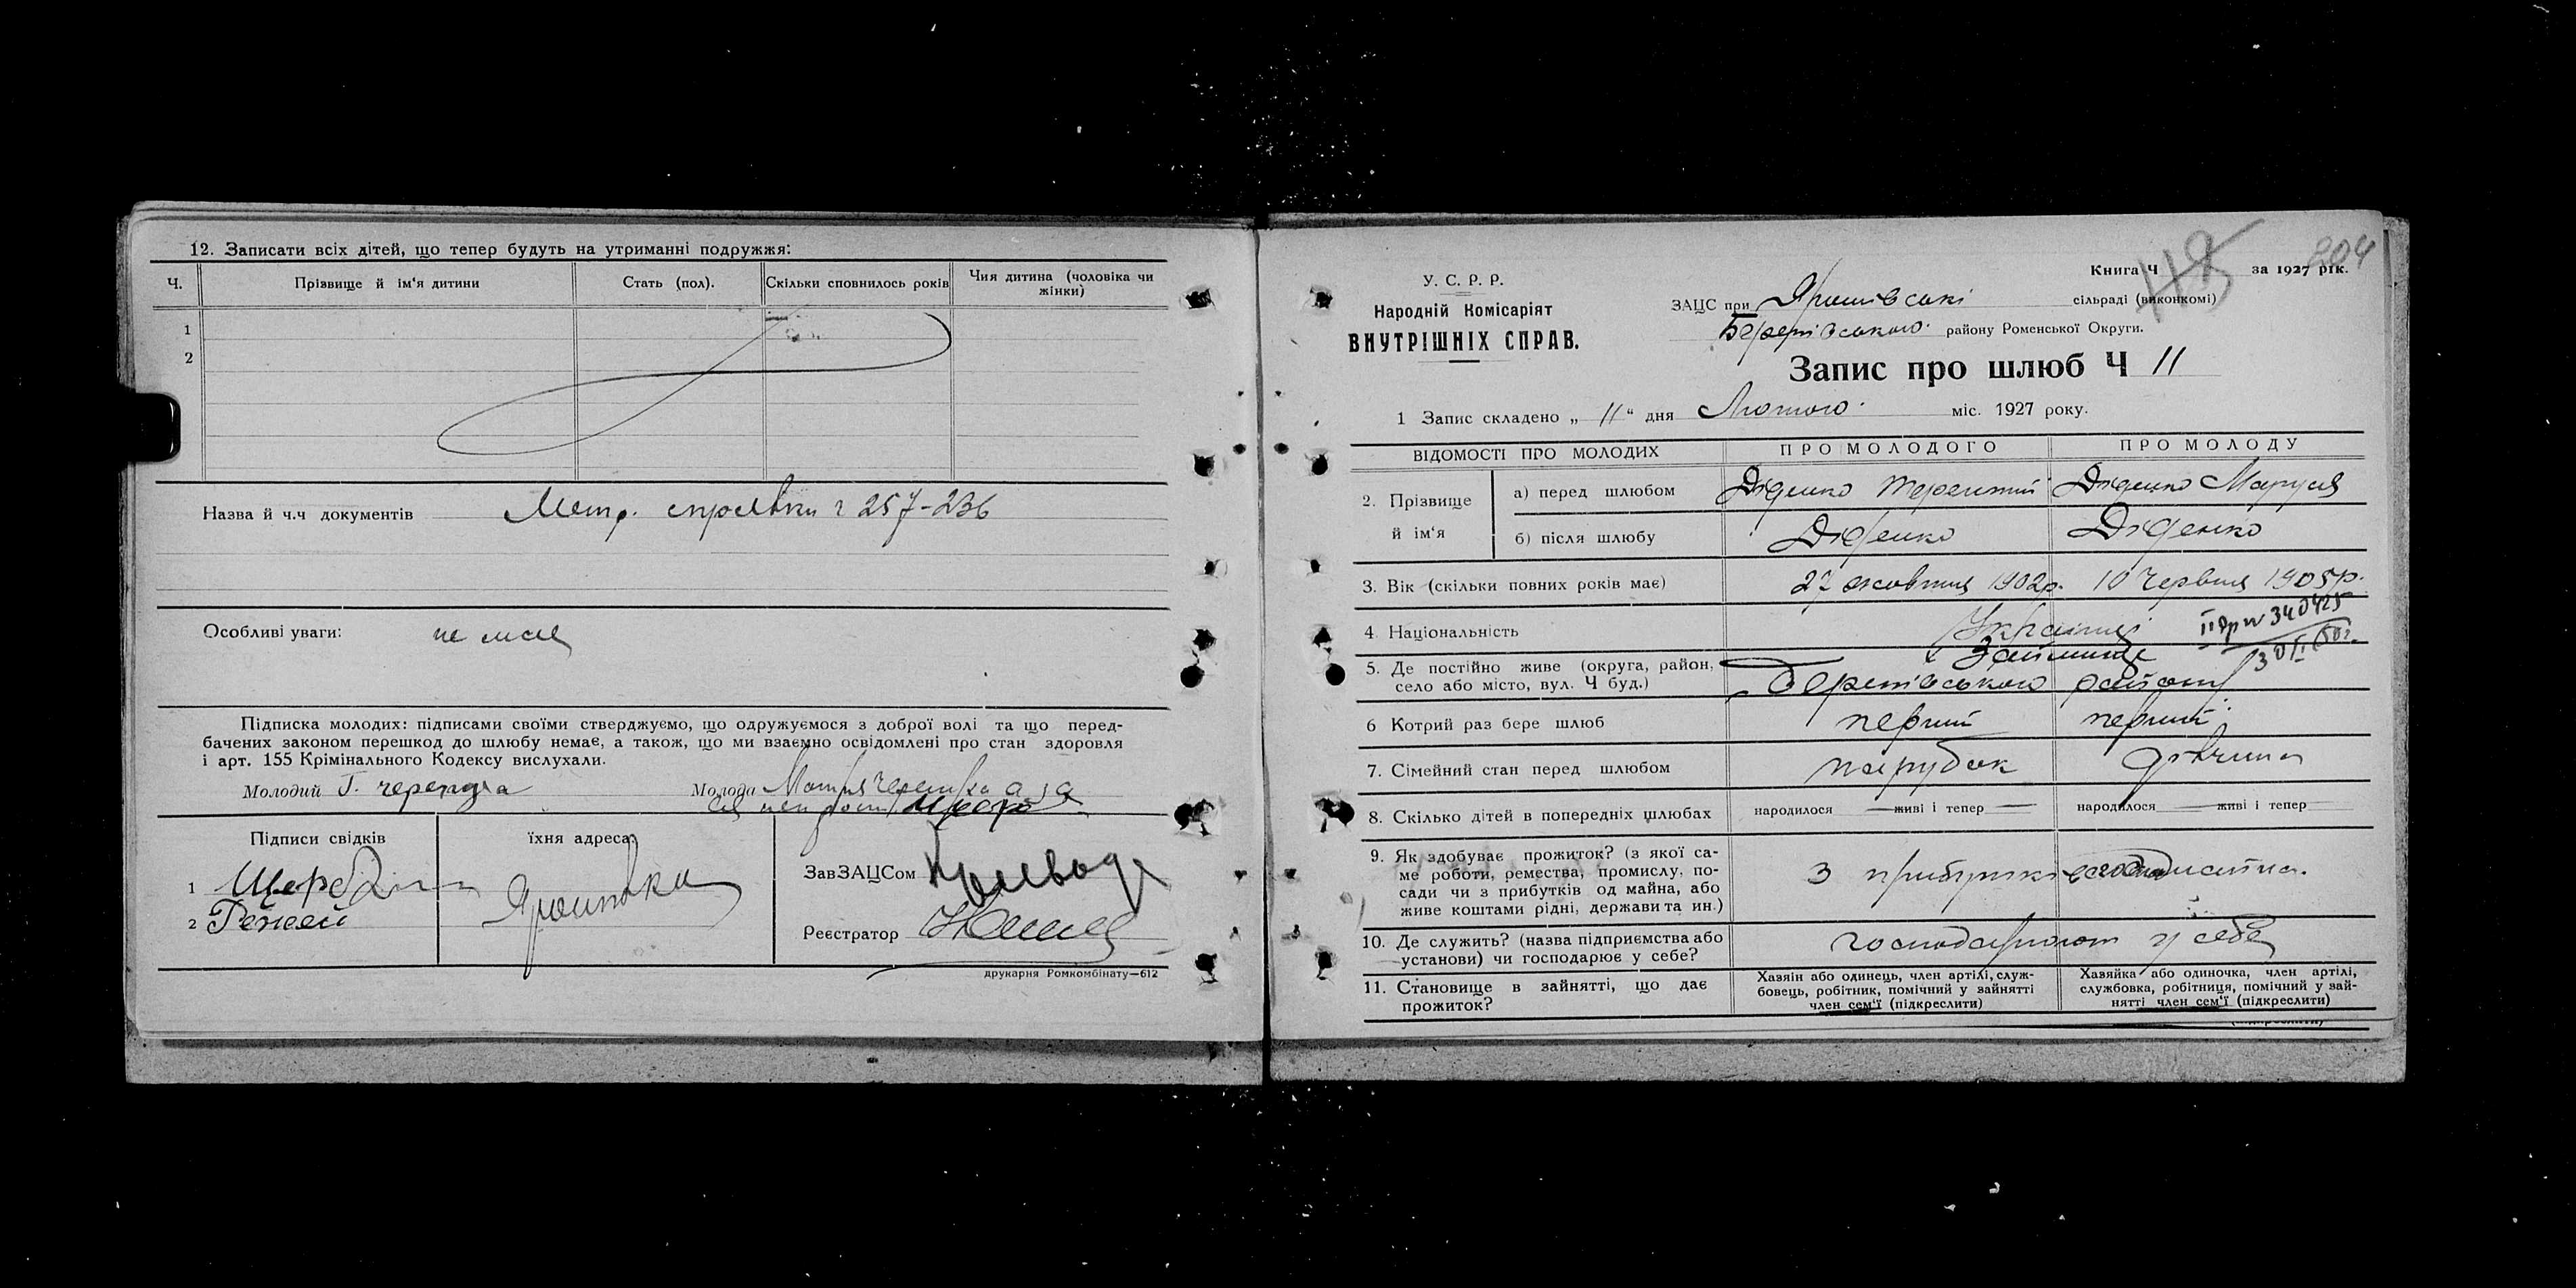 12. Записати всіх дітей, що тепер будуть на утриманні подружжя:
Ч.
Прізвище й ім'я дитини
Стать (пол).
Скільки сповнилось років
Чия дитина (чоловіка чи
жінки)
1
2
Назва й ч.ч документів
Метр. справки 257-236
Особливі уваги:
не має
Підписка молодих: підписами своїми стверджуємо, що одружуємося з доброї волі та що перед-
бачених законом перешкод до шлюбу немає, а також, що ми взаємно освідомлені про стан здоровля
і арт. 155 Крімінального Кодексу вислухали.
Молодий
Молода
Підписи свідків
їхня адреса:
1
2
Яроштвка
ЗавЗАЦСом
Реєстратор
друкарня Ромкомбінату—612
204
Книга Ч
за 1927 рік.
У. С. Р. Р.
Народній Комісаріят
ВНУТРІШНІХ СПРАВ.
ЗАЦС при
сільраді (виконкомі)
району Роменської Округи.
Запис про шлюб Ч 11
1 Запис складено „ 11 “ дня Лютого міс. 1927 року.
ВІДОМОСТІ ПРО МОЛОДИХ
ПРО МОЛОДОГО
ПРО МОЛОДУ
2. Прізвище
й ім'я
а) перед шлюбом
Діденко Терентий
Діденко Маруся
б) після шлюбу
Діденко
Діденко
3. Вік (скільки повних років має)
27 жовтня 1902р.
10 Червня 1905р.
4 Національність
Українці
5. Де постійно живе (округа, район,
село або місто, вул. Ч буд.)
району
6 Котрий раз бере шлюб
перший
перший
7. Сімейний стан перед шлюбом
парубок
дівчина
8. Скілько дітей в попередніх шлюбах
народилося — живі і тепер —
народилося — живі і тепер
9. Як здобуває прожиток? (з якої са-
ме роботи, ремества, промислу, по-
сади чи з прибутків од майна, або
живе коштами рідні, держави та ин.)
З
10. Де служить? (назва підприємства або
установи) чи господарює у себе?
господарюют у себе
11. Становище в зайнятті, що дає
прожиток?
Хазяін або одинець, член артілі, служ-
бовець, робітник, помічний у зайнятті
член сем'ї (підкреслити)
Хазяйка або одиночка, член артілі,
службовка, робітниця, помічний у зай-
нятті член сем'ї (підкреслити)